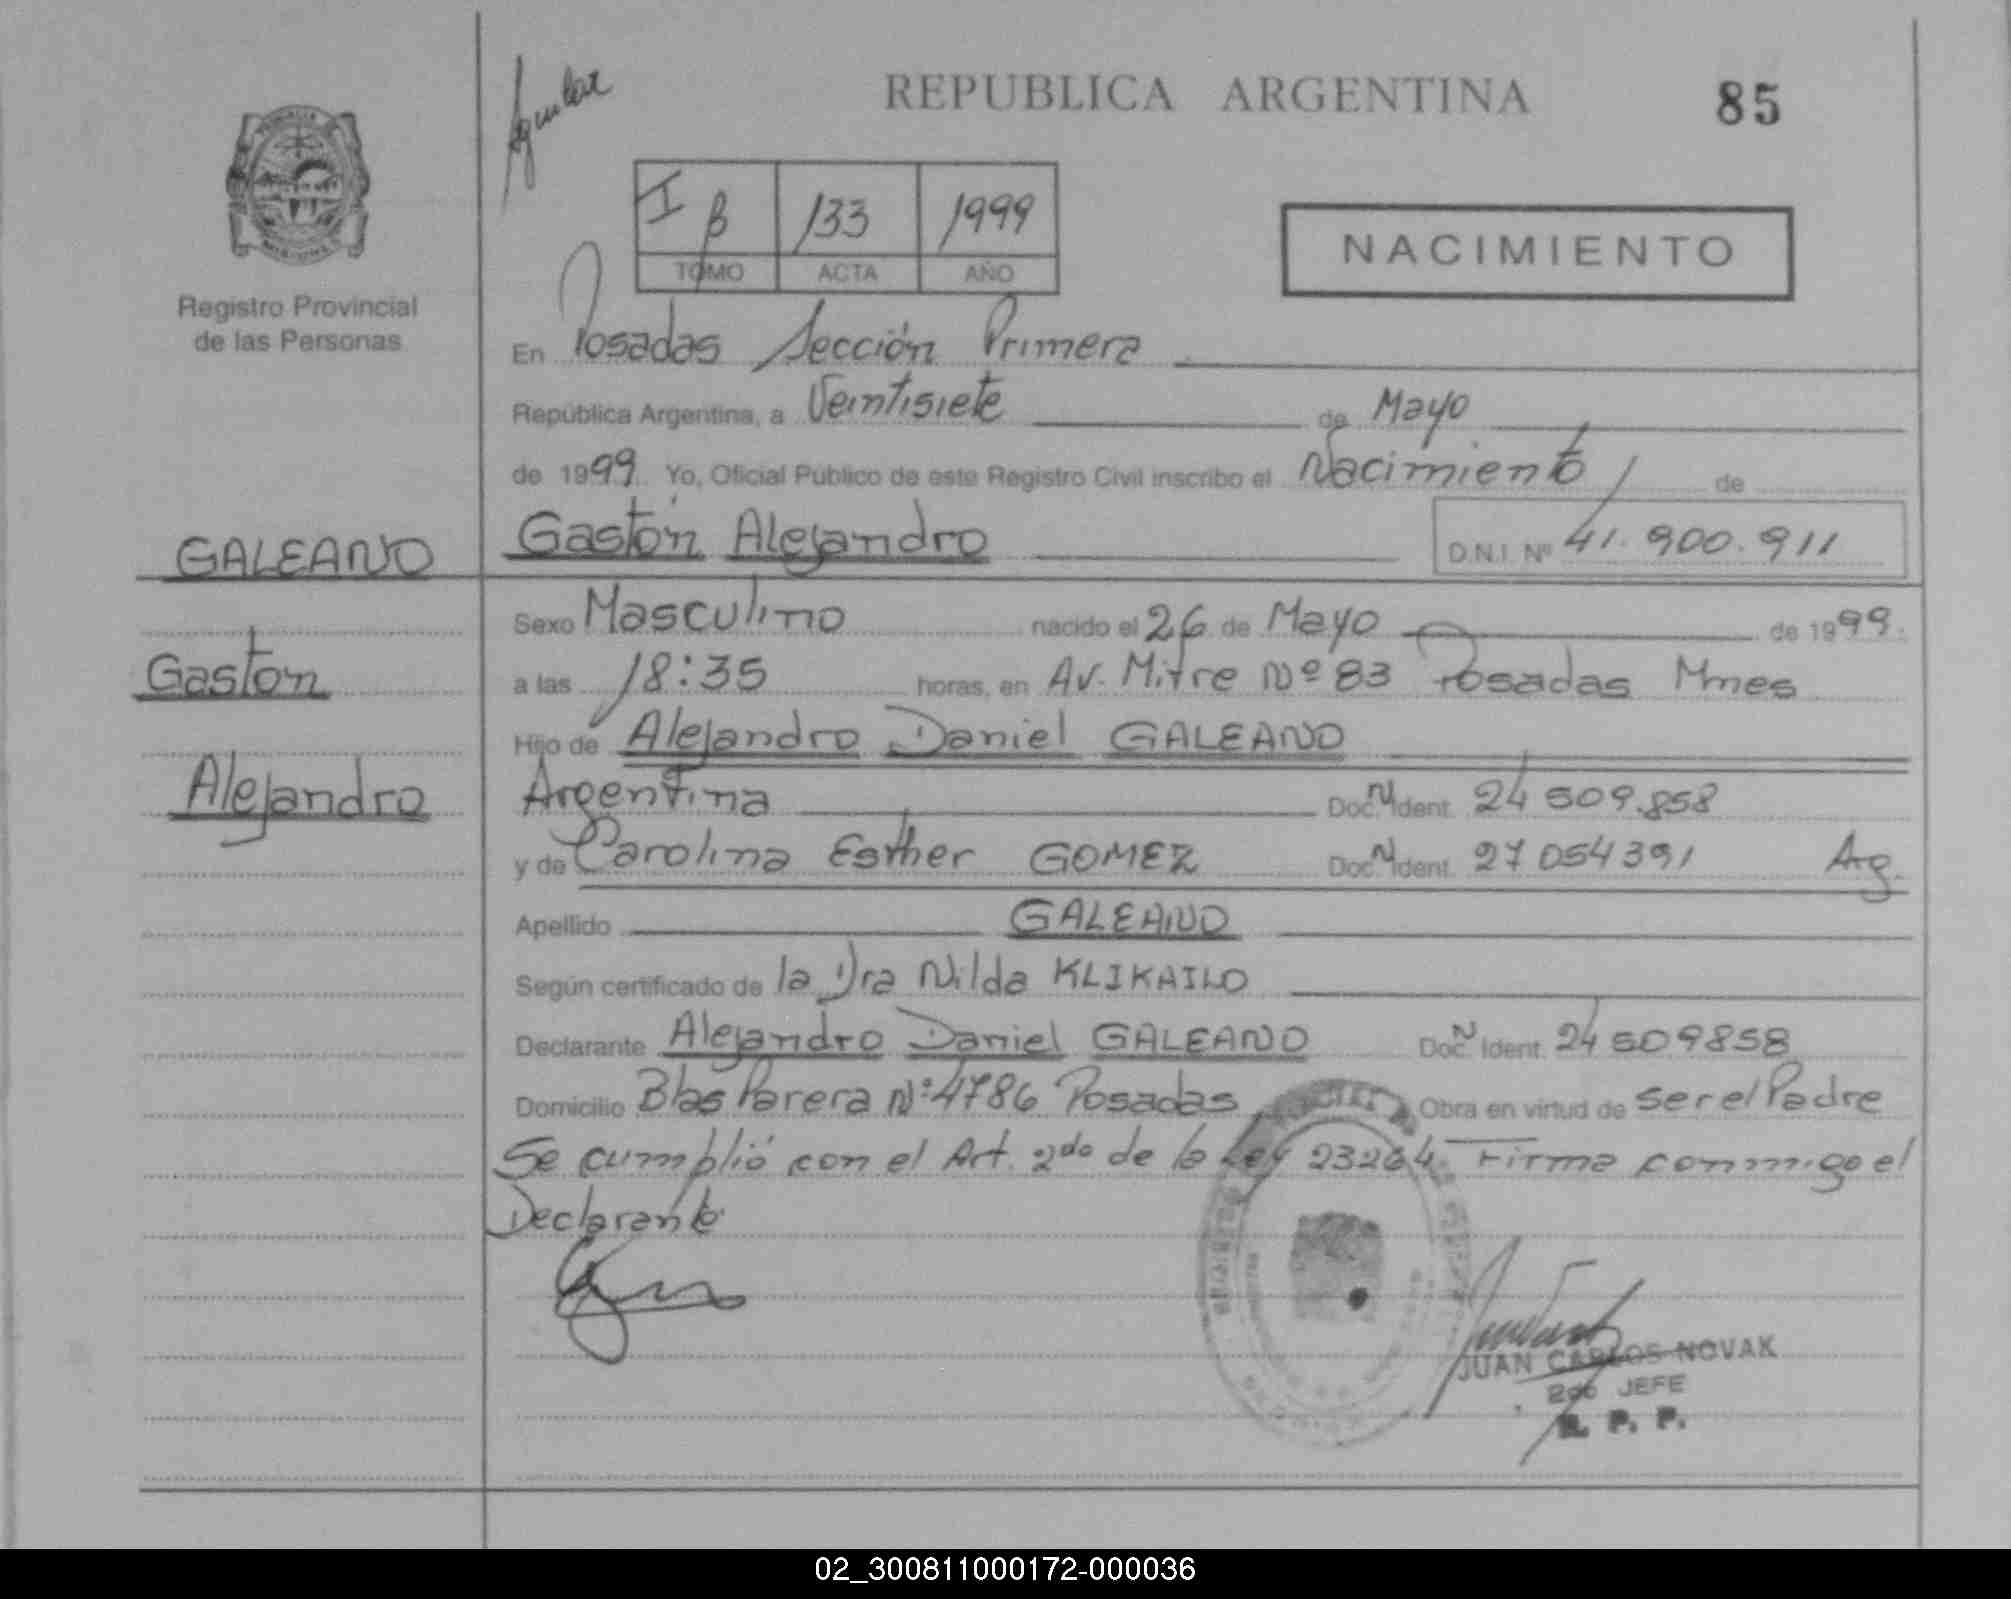 Aguilar
REPUBLICA ARGENTINA
85
I B 133 1999
TOMO ACTA AÑO
NACIMIENTO
Registro Provincial
de las Personas
En Posadas Sección Primera
República Argentina, a Veintisiete de Mayo
de 1999 Yo, Oficial Público de este Registro Civil inscribo el Nacimiento de
GALEANO
Gastón Alejandro D.N.I. Nº 41.900.911
Sexo Masculino nacido el 26 de Mayo de 1999.
Gaston
a las 18:35 horas, en Av. Mitre Nº 83 Posadas Mnes
Hijo de Alejandro Daniel GALEANO
Alejandro
Argentina Doc. N Ident. 24 509.858
y de Carolina Esther GOMEZ Doc. N Ident. 27 054391 Arg.
Apellido GALEANO
Según certificado de la Dra Nilda KLIKAILO
Declarante Alejandro Daniel GALEANO Doc. N Ident. 24 509858
Domicilio Blas Parera Nº 4786 Posadas Obra en virtud de ser el Padre
Se cumplió con el Art. 2do de la Ley 23264. Firma conmigo el
Declarante.
JUAN CARLOS NOVAK
2do JEFE
R. P. P.
02_300811000172-000036